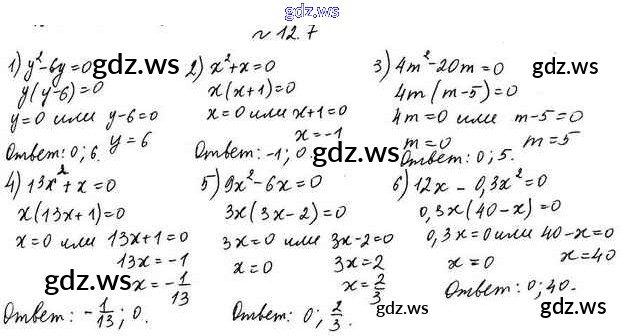 gdz.ws
№ 12.7
1) y²-6y=0
y(y-6)=0
y=0 или y-6=0
y=6
Ответ: 0; 6.
2) x²+x=0
x(x+1)=0
x=0 или x+1=0
x=-1
Ответ: -1; 0
3) 4m²-20m=0
4m(m-5)=0
4m=0 или m-5=0
m=0 m=5
Ответ: 0; 5.
4) 13x²+x=0
x(13x+1)=0
x=0 или 13x+1=0
13x=-1
x=-1/13
Ответ: -1/13; 0.
5) 9x²-6x=0
3x(3x-2)=0
3x=0 или 3x-2=0
x=0 3x=2
x=2/3
Ответ: 0; 2/3.
6) 12x-0,3x²=0
0,3x(40-x)=0
0,3x=0 или 40-x=0
x=0 x=40
Ответ: 0; 40.
gdz.ws
gdz.ws
gdz.ws
gdz.ws
gdz.ws
gdz.ws
gdz.ws
gdz.ws
gdz.ws